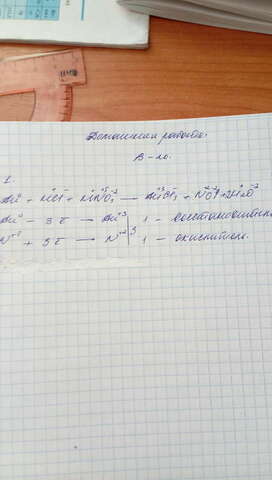 Домашняя работа.
В-10.
1.
Au⁰ + HCl + HNO₃ → AuCl₃ + NO + 2H₂O
Au⁰ - 3ē → Au⁺³ | 1 - восстановитель
N⁺⁵ + 3ē → N⁺² | 3 1 - окислитель.